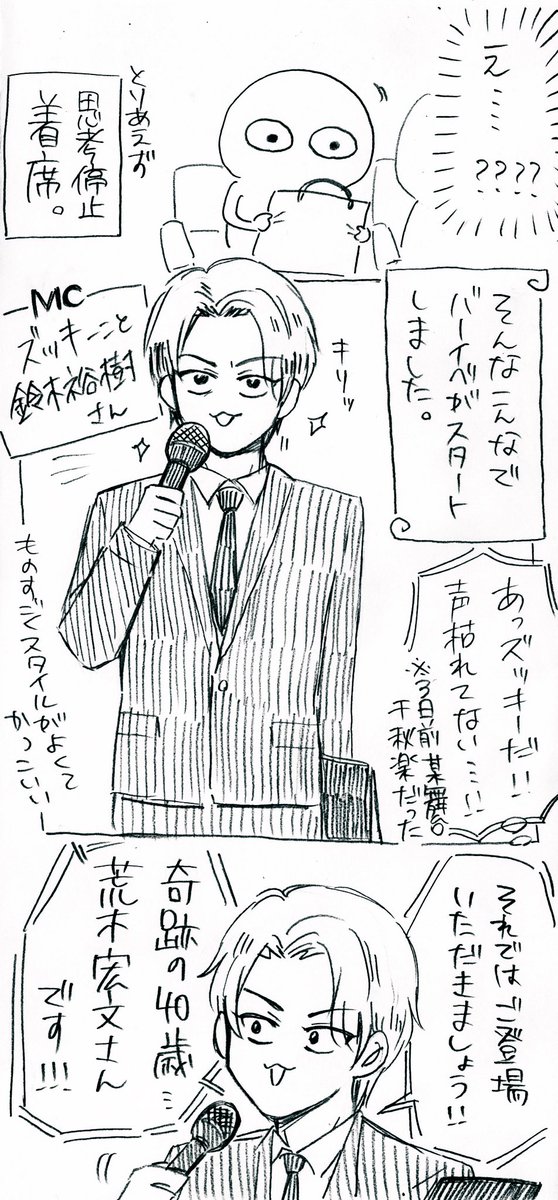 え……
????
とりあえず
思考停止
着席。
そんなこんなで
バーイベがスタート
しました。
MC
ズッキーこと
鈴木裕樹
さん
キリッ
あっズッキーだ!!
声枯れてない…!!
※3日前某舞台
千秋楽だった
ものすごくスタイルがよくて
かっこいい
それではご登場
いただきましょう!!
奇跡の40歳…
荒木宏文さん
です!!!